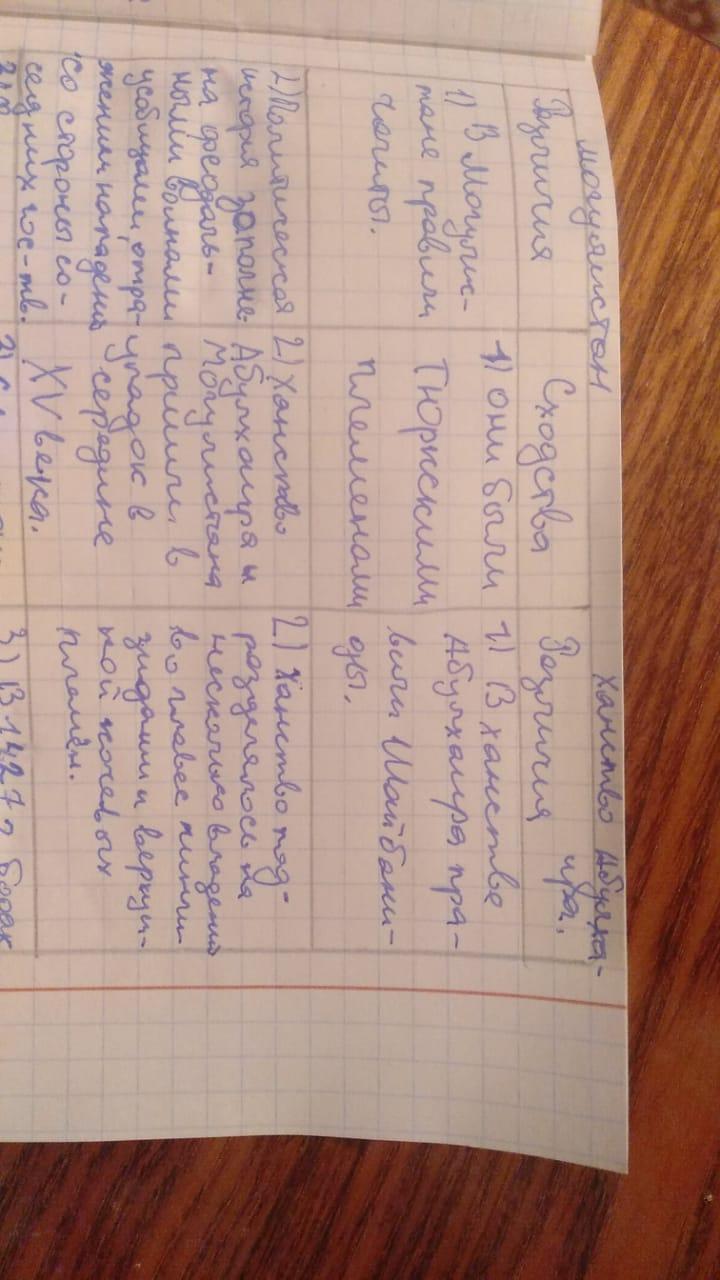 Могулистон
Ханство Абулха-
ира,
Различия
Сходства
Различия
1) В Могулис-
тане правили
чагаиты.
1) они были
Тюркскими
племенами
1) В ханстве
Абулхаира пра-
вили Шайбани-
ды.
2) Политическая
история заполне-
на феодаль-
ными войнами
усобицами, отра-
жением нападения
со стороны со-
седних гос-тв.
2) Ханство
Абулхаира и
Могулистана
пришли в
упадок в
середине
XV века.
2) Ханство под-
разделялось на
несколько владений
во главе с чинги-
зидами и верхуш-
кой кочевых
племён.
3) В 1427 г Борак